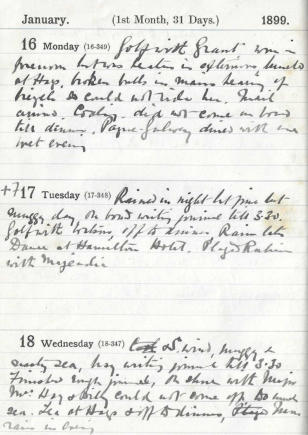 January. (1st Month, 31 Days.) 1899.
16 Monday (16-349) Golf with Grant won in
forenoon but was beaten in afternoon
at Hays, broken balls in main bearing of
bicycle so could not ride her. Mail
arrived. did not come on board
till dinner. Payne Galwey dined with me
wet evening
+7 17 Tuesday (17-348) Rained in night but fine but
muggy day, on board writing journal till 3.30.
Golf with Watson, off to dinner Rain late
Dance at Hamilton Hotel. Played Rubicon
with Majendie
18 Wednesday (18-347) wind, muggy &
sea, busy writing journal till 3.30
Finished rough journal, on shore with Major
Mrs Hay & could not come off
sea. Tea at Hays & off to dinner,
rain in evening